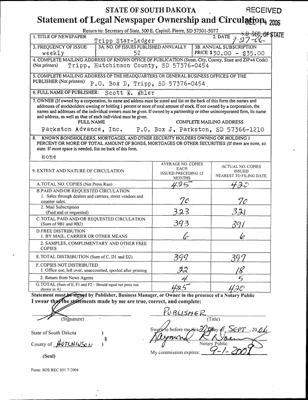 STATE OF SOUTH DAKOTA
RECEIVED
Statement of Legal Newspaper Ownership and Circulation
2006
Return to: Secretary of State, 500 E. Capitol, Pierre, SD 57501-5077
S.D. SEC. OF STATE
1. TITLE OF NEWSPAPER
2. DATE
Tripp Star-Ledger
3. FREQUENCY OF ISSUE
3A. NO. OF ISSUES PUBLISHED ANNUALLY
3B. ANNUAL SUBSCRIPTION
weekly
52
PRICE $30.00 - $35.00
4. COMPLETE MAILING ADDRESS OF KNOWN OFFICE OF PUBLICATION (Street, City, County, State and ZIP+4 Code)
(Not printers)
Tripp, Hutchinson County, SD 57376-0454
5. COMPLETE MAILING ADDRESS OF THE HEADQUARTERS OR GENERAL BUSINESS OFFICES OF THE
PUBLISHER (Not printers)
P.O. Box D, Tripp, SD 57376-0454
6. FULL NAME OF PUBLISHER:
Scott K. Ehler
7. OWNER (If owned by a corporation, its name and address must be stated and also on the back of this form the names and
addresses of stockholders owning or holding 1 percent or more of total amount of stock. If not owned by a corporation, the
names and addresses of the individual owners must be given. If owned by a partnership or other unincorporated firm, its name
and address, as well as that of each individual must be given).
FULL NAME
COMPLETE MAILING ADDRESS
Parkston Advance, Inc.
P.O. Box J, Parkston, SD 57366-1210
8. KNOWN BONDHOLDERS, MORTGAGEES, AND OTHER SECURITY HOLDERS OWNING OR HOLDING 1
PERCENT OR MORE OF TOTAL AMOUNT OF BONDS, MORTGAGES OR OTHER SECURITIES (If there are none, so
state. If more space is needed, list on back of this form).
none
9. EXTENT AND NATURE OF CIRCULATION
AVERAGE NO. COPIES
EACH
ISSUED PRECEDING 12
MONTHS
ACTUAL NO. COPIES
ISSUED
NEAREST TO FILING DATE
A. TOTAL NO. COPIES (Net Press Run)
425
420
B. PAID AND/OR REQUESTED CIRCULATION
1. Sales through dealers and carriers, street vendors and
counter sales.
70
70
2. Mail Subscription
(Paid and or requested)
323
321
C. TOTAL PAID AND/OR REQUESTED CIRCULATION
(Sum of 9B1 and 9B2)
393
391
D. FREE DISTRIBUTION
1. BY MAIL, CARRIER OR OTHER MEANS
6
6
2. SAMPLES, COMPLIMENTARY AND OTHER FREE
COPIES
E. TOTAL DISTRIBUTION (Sum of C, D1 and D2)
399
397
F. COPIES NOT DISTRIBUTED
1. Office use, left over, unaccounted, spoiled after printing
22
18
2. Return from News Agents
4
5
G. TOTAL (Sum of E, F1 and F2 - Should equal net press run
shown in A)
425
420
Statement must be signed by Publisher, Business Manager, or Owner in the presence of a Notary Public
I swear that the statements made by me are true, correct, and complete:
PUBLISHER
(Signature)
(Title)
State of South Dakota )
County of HUTCHINSON )
Notary Public
(Seal)
My commission expires:
Form: SOS REC 051 7/2004